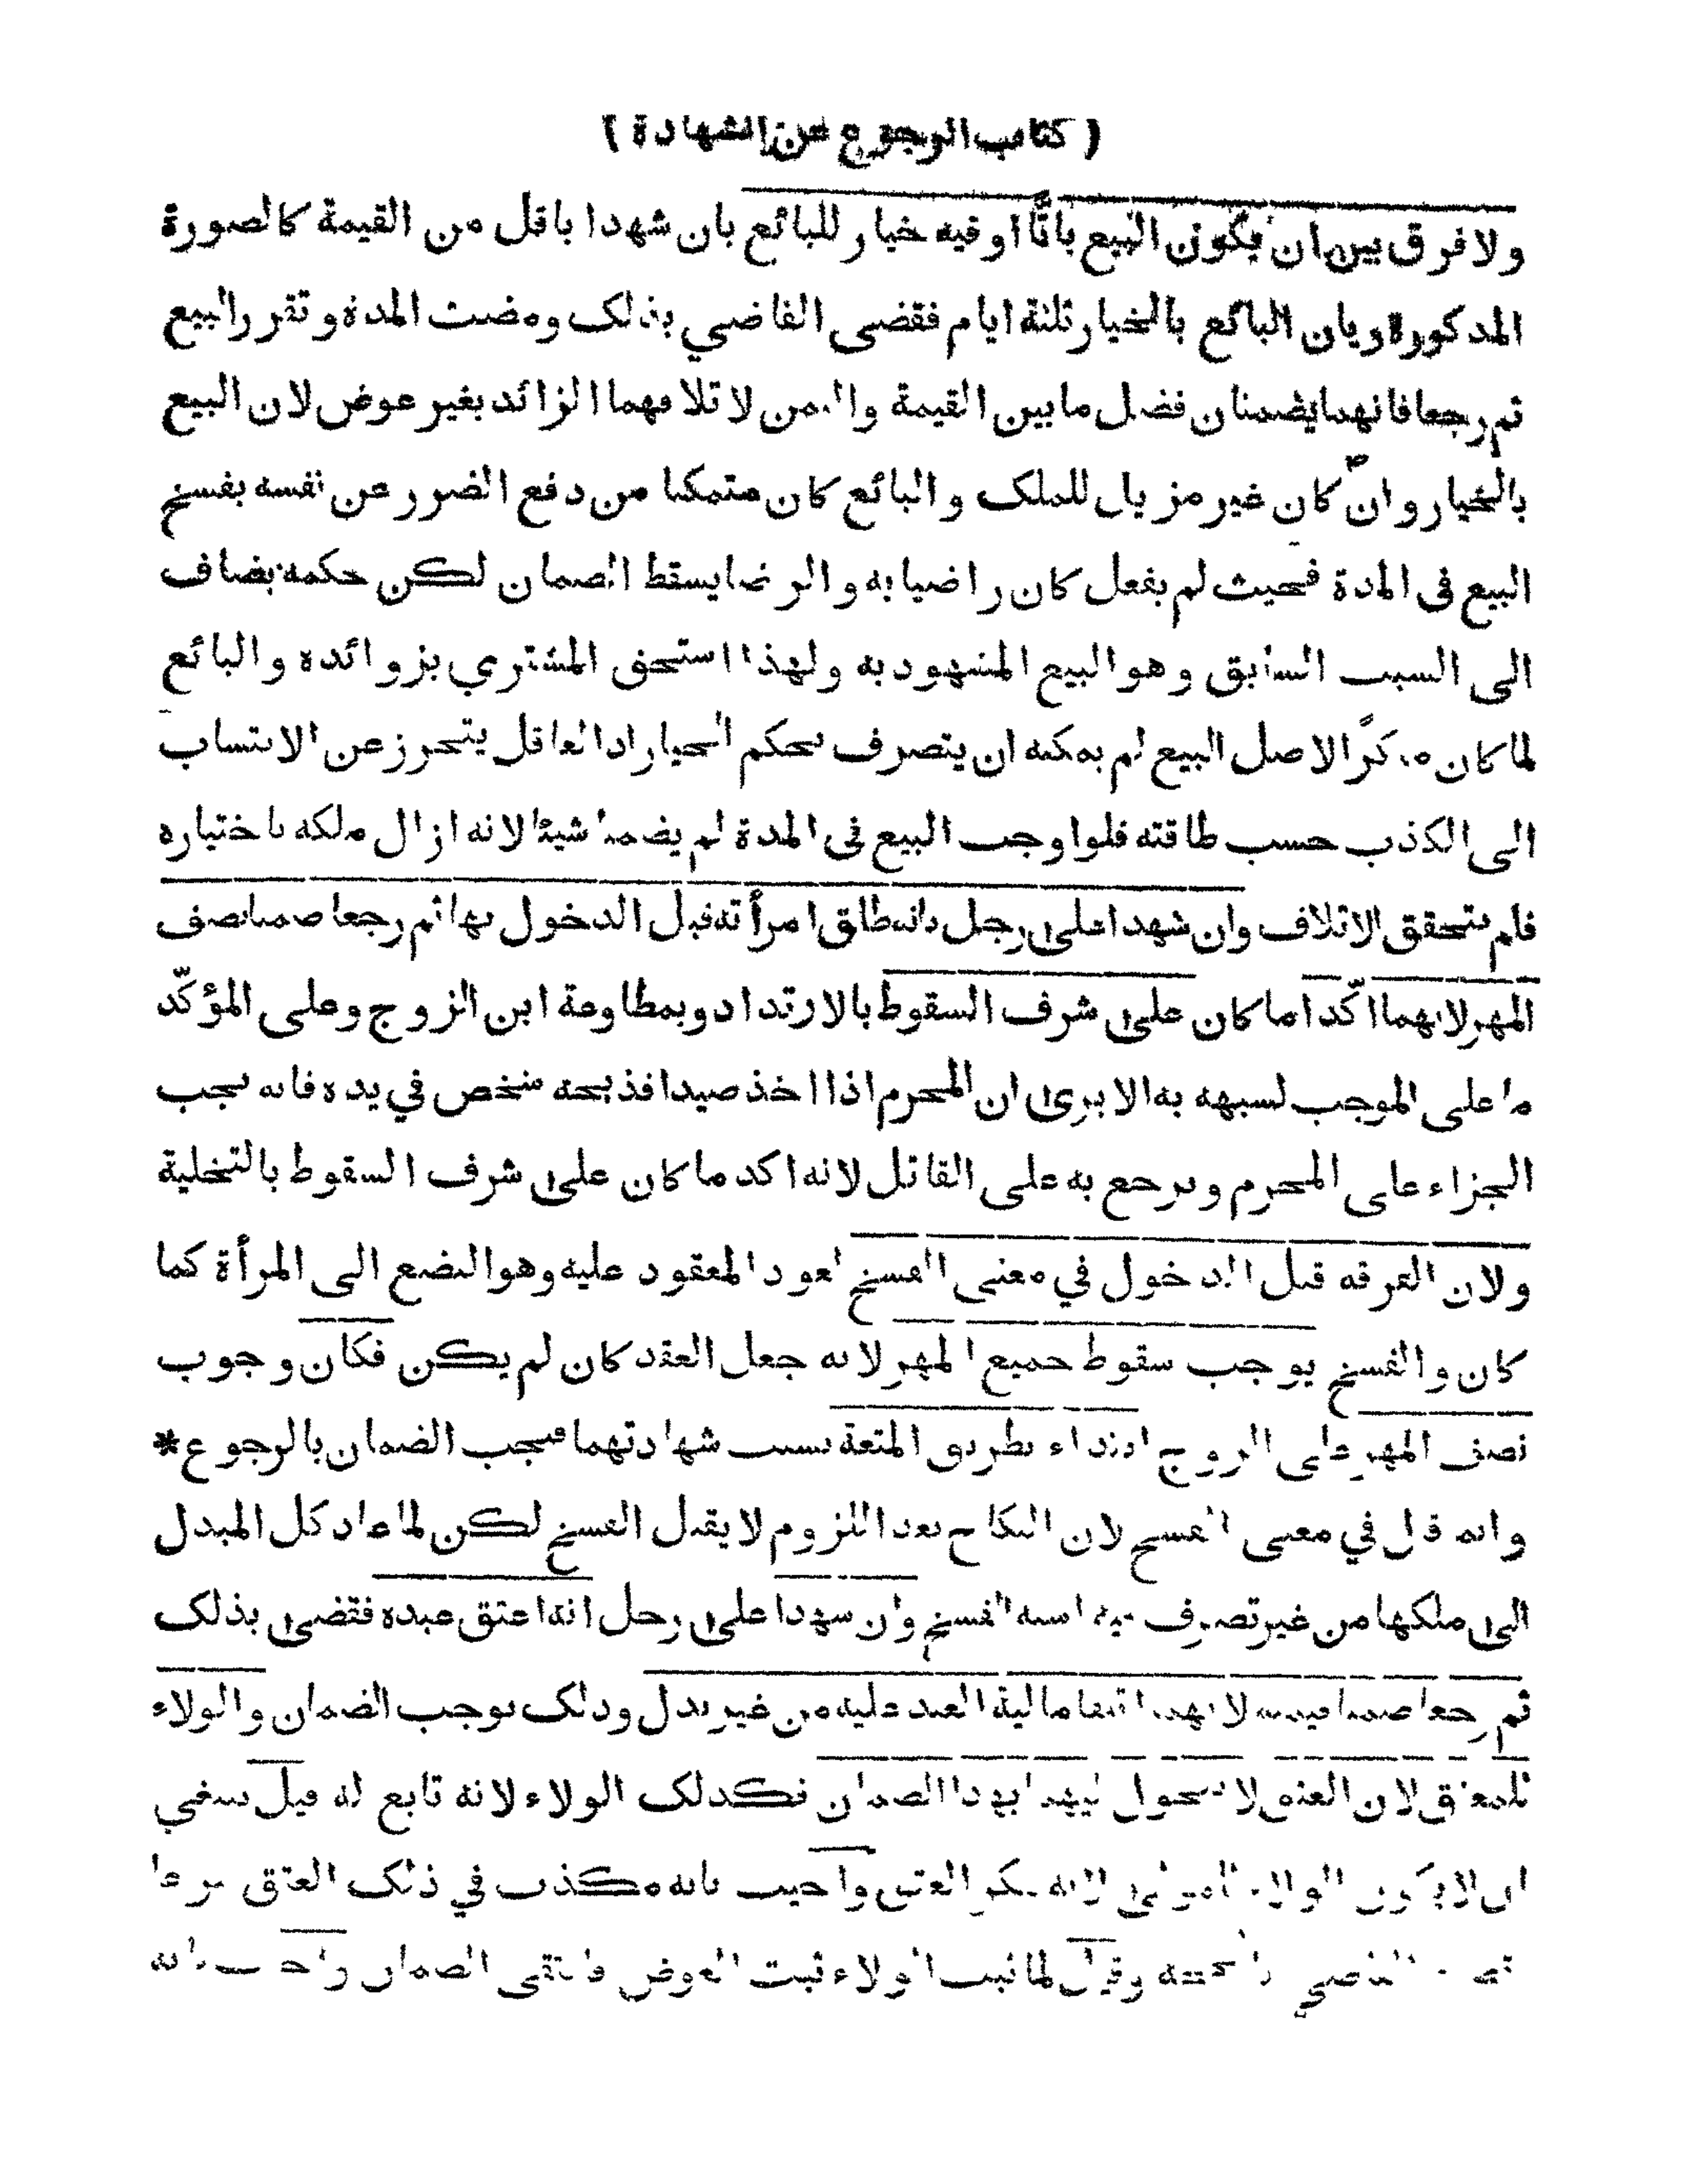 ( كتاب الرجوع عن الشهادة )
ولا فرق بين ان يكون البيع باتًّا او فيه خيار للبائع بان شهدا باقل من القيمة كالصورة
المذكورة وبان البائع بالخيار ثلثة ايام فقضى القاضي بذلك ومضت المدة وتقرر البيع
ثم رجعا فانهما يضمنان فضل ما بين القيمة والثمن لاتلافهما الزائد بغير عوض لان البيع
بالخيار وان كان غير مزيل للملك والبائع كان متمكنا من دفع الضرر عن نفسه بفسخ
البيع فى المدة فحيث لم يفعل كان راضيا به والرضا يسقط الضمان لكن حكمه يضاف
الى السبب السابق وهو البيع المشهود به ولهذا استحق المشتري بزوائده والبائع
لما كان منكرًا لاصل البيع لم يمكنه ان يتصرف بحكم الخيار اذ العاقل يتحرز عن الانتساب
الى الكذب حسب طاقته فلو اوجب البيع فى المدة لم يضمنا شيئا لانه ازال ملكه باختياره
فلم يتحقق الاتلاف وان شهدا على رجل بانه طلق امرأته قبل الدخول بها ثم رجعا ضمنا نصف
المهر لانهما اكّدا ما كان على شرف السقوط بالارتداد وبمطاوعة ابن الزوج وعلى المؤكّد
ما على الموجب لشبهه به الا يرى ان المحرم اذا اخذ صيدا فذبحه شخص في يده فانه يجب
الجزاء على المحرم ويرجع به على القاتل لانه اكد ما كان على شرف السقوط بالتخلية
ولان الفرقه قبل الدخول في معنى الفسخ لعود المعقود عليه وهو البضع الى المرأة كما
كان والفسخ يوجب سقوط جميع المهر لانه جعل العقد كان لم يكن فكان وجوب
نصف المهر على الزوج ابتداء بطريق المتعة بسبب شهادتهما فيجب الضمان بالرجوع *
وانه قال في معنى الفسخ لان النكاح بعد اللزوم لا يقبل الفسخ لكن لما عاد كل المبدل
الى ملكها من غير تصرف فيه اشبه الفسخ وان شهدا على رجل انه اعتق عبده فقضى بذلك
ثم رجعا ضمنا قيمته لانهما اتلفا مالية العبد عليه من غير بدل وذلك يوجب الضمان والولاء
للمعتق لان العتق لا يتحول اليهما بهذا الضمان فكذلك الولاء لانه تابع له قيل ينبغي
ان لا يكون الولاء للمولى لانه ينكر العتق واجيب بانه مكذب في ذلك العتق شرعا
القاضي وقيل لما ثبت الولاء ثبت العوض فانتفى الضمان بانه